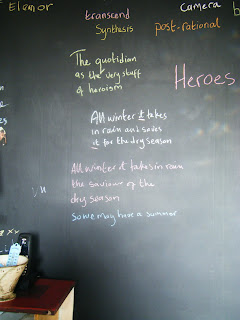 Eleanor
transcend
camera
Synthesis
post-rational
The quotidian
as the very stuff
of heroism
Heroes
All winter it takes
in rain and saves
it for the dry season
All winter it takes in rain
the saviour of the
dry season
Some may have a summer